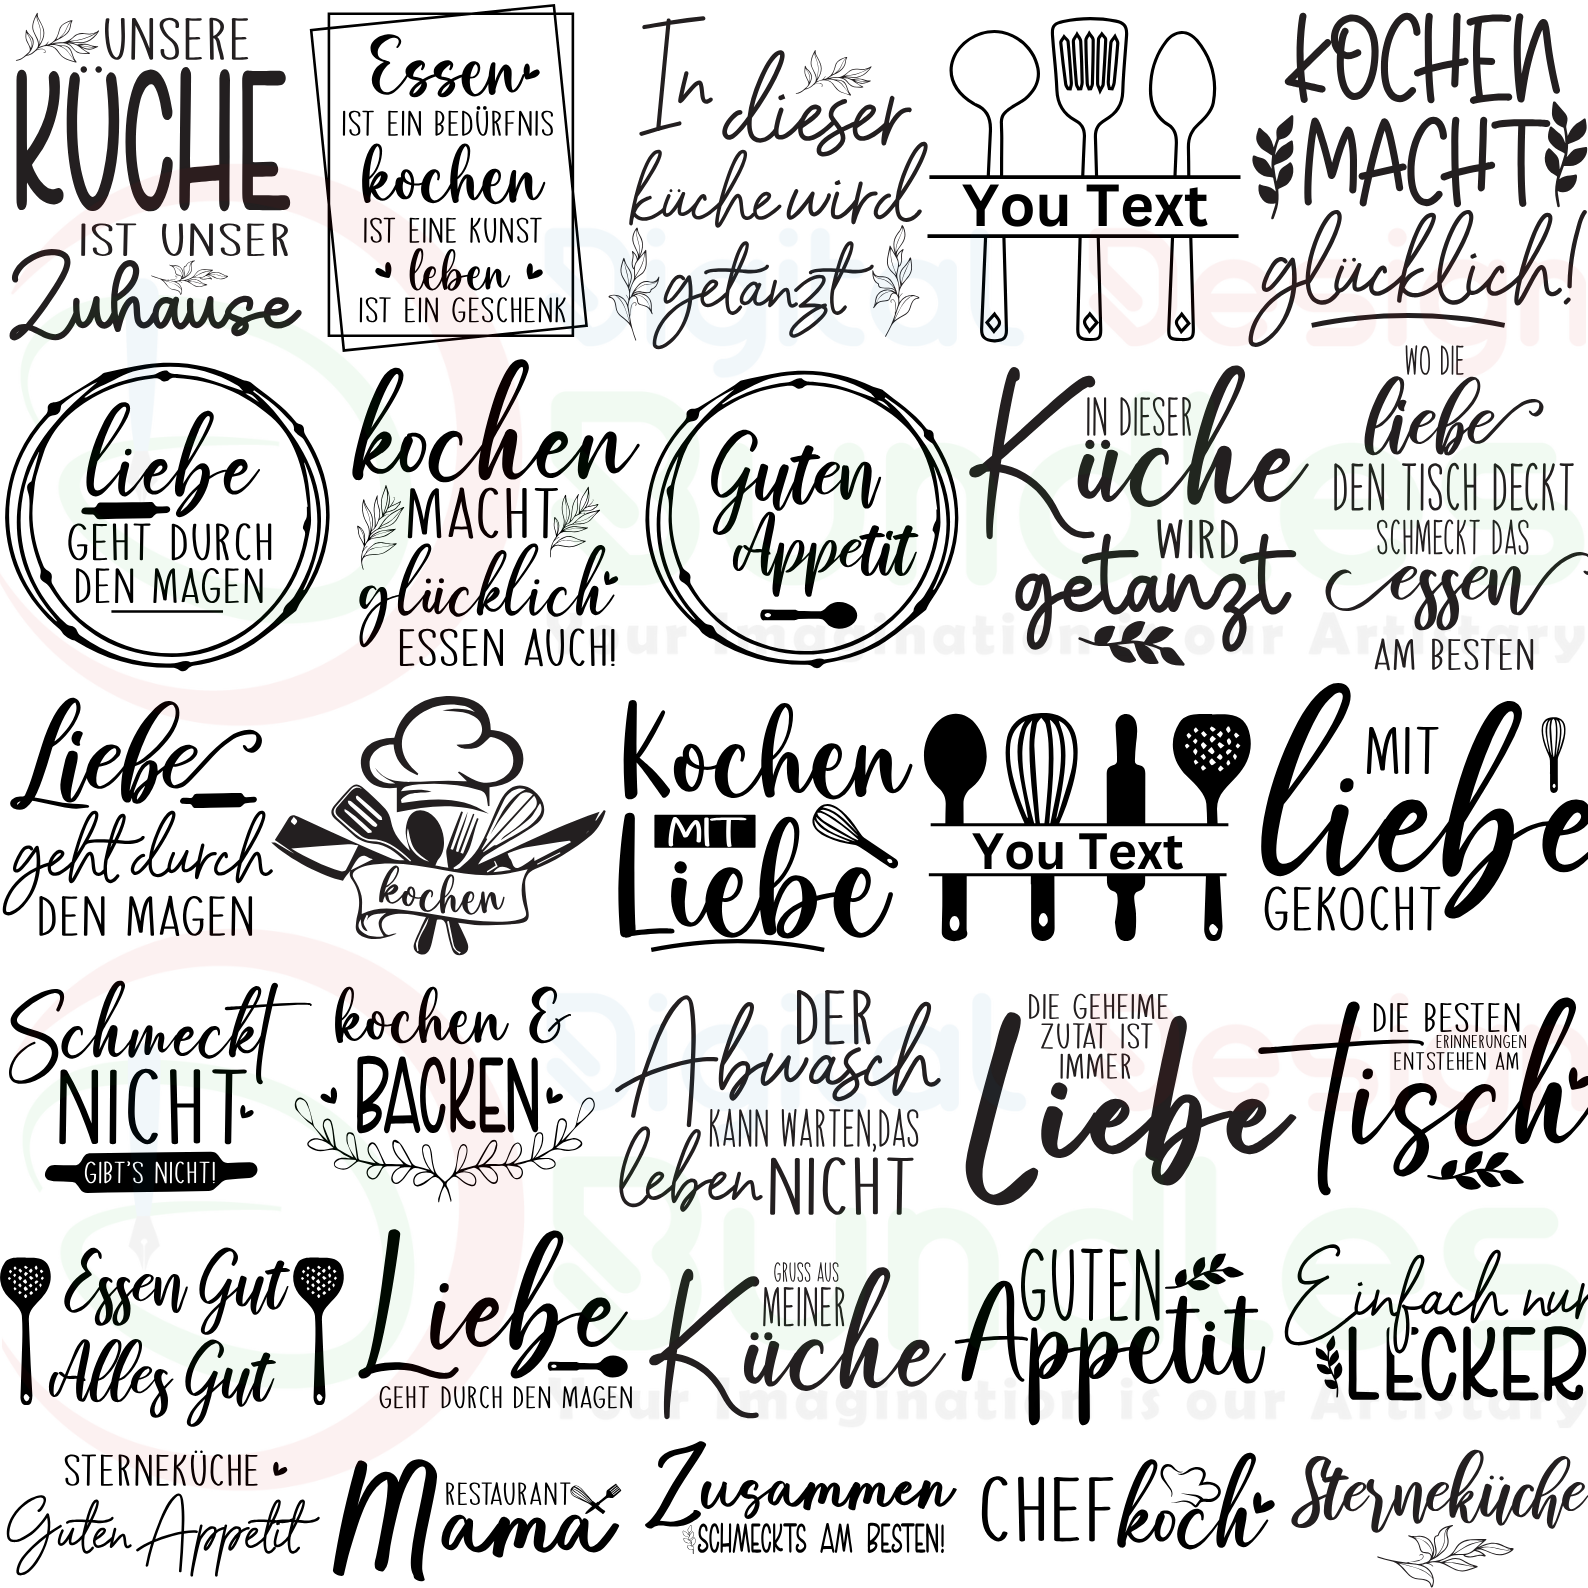 UNSERE
KÜCHE
IST UNSER
Zuhause
Essen
IST EIN BEDÜRFNIS
kochen
IST EINE KUNST
leben
IST EIN GESCHENK
In dieser
küche wird
getanzt
You Text
KOCHEN
MACHT
glücklich!
liebe
GEHT DURCH
DEN MAGEN
kochen
MACHT
glücklich
ESSEN AUCH!
Guten
Appetit
IN DIESER
Küche
WIRD
getanzt
WO DIE
liebe
DEN TISCH DECKT
SCHMECKT DAS
essen
AM BESTEN
Liebe
geht durch
DEN MAGEN
kochen
Kochen
MIT
Liebe
You Text
MIT
liebe
GEKOCHT
Schmeckt
NICHT
GIBT'S NICHT!
kochen &
BACKEN
DER
Abwasch
KANN WARTEN,DAS
leben NICHT
DIE GEHEIME
ZUTAT IST
IMMER
Liebe
DIE BESTEN
ERINNERUNGEN
ENTSTEHEN AM
Tisch
Essen Gut
Alles Gut
Liebe
GEHT DURCH DEN MAGEN
GRUSS AUS
MEINER
Küche
GUTEN
Appetit
Einfach nur
LECKER
STERNEKÜCHE
Guten Appetit
RESTAURANT
Mama
Zusammen
SCHMECKTS AM BESTEN!
CHEFkoch
Sterneküche
Digital Design
Bundles
Your Imagination is our Artistary
Digital Design
Bundles
Your Imagination is our Artistary